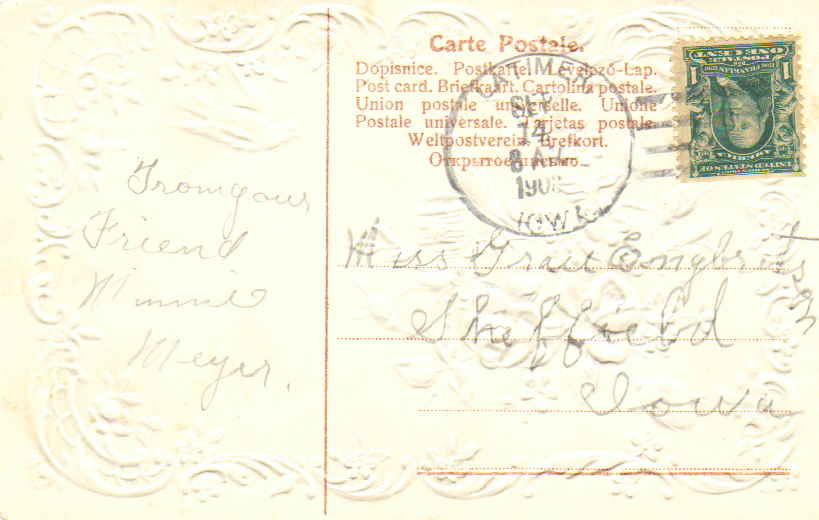 Carte Postale.
Dopisnice. Postkarte. Levelező-Lap.
Post card. Briefkaart. Cartolina postale.
Union postale universelle. Unione
Postale universale. Tarjetas postale.
Weltpostverein. Brefkort.
Открытое письмо.
LATIMER
SEP
14
8 A.M.
1908
IOWA
UNITED STATES OF AMERICA
1
1
POSTAGE
ONE CENT
From your
Friend
Minnie
Meyer.
Miss Grace Engbretson
Sheffield
Iowa